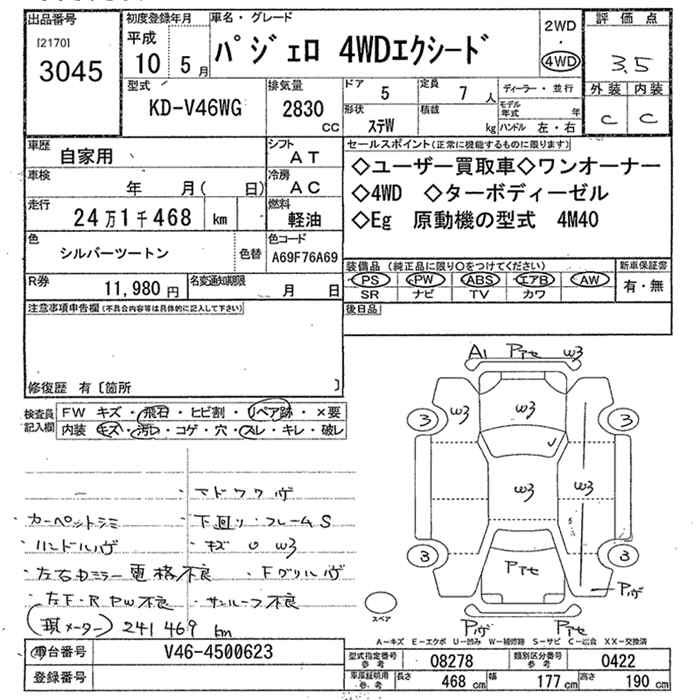 出品番号
[2170]
3045
初度登録年月
平成
10 5月
車名・グレード
パジェロ 4WDエクシード
2WD
・
4WD
評価点
3.5
外装 内装
C C
型式
KD-V46WG
排気量
2830 CC
ドア 5
定員 7人
形状 ステW
積載 kg
ディーラー・並行
モデル年式 年
ハンドル 左・右
車歴 自家用
シフト AT
車検 年 月( 日)
冷房 AC
走行 24万1千468 km
燃料 軽油
色 シルバーツートン
色替
色コード A69F76A69
R券 11,980円
名変通知期限 月 日
セールスポイント(正常に機能するものに限ります)
◇ユーザー買取車◇ワンオーナー
◇4WD ◇ターボディーゼル
◇Eg 原動機の型式 4M40
装備品(純正品に限り〇をつけてください)
PS PW ABS エアB AW
SR ナビ TV カワ
新車保証書
有・無
後日品
注意事項申告欄(不具合内容等は具体的に記入して下さい)
修復歴 有〔箇所 〕
検査員記入欄
FW キズ・飛石・ヒビ割・リペア跡・×要
内装 キズ・汚レ・コゲ・穴・スレ・キレ・破レ
カーペットシミ
ハンドルハゲ
左右カミラー電格不良
左F・R PW不良
(現メーター) 241469 km
マドワクハゲ
下廻り・フレームS
キズ U W3
Fグリルハゲ
サンルーフ不良
A1 アセ W3
3 W3 W3 3
W3 W3
3 アセ 3
ハゲ
ハゲ アセ
スペア
A−キズ E−エクボ U−凹み W−補修跡 S−サビ C−腐食 XX−交換済
車台番号 V46-4500623
登録番号
型式指定番号 参考 08278
類別区分番号 参考 0422
車庫証明用 参考 長さ 468 cm 幅 177 cm 高さ 190 cm